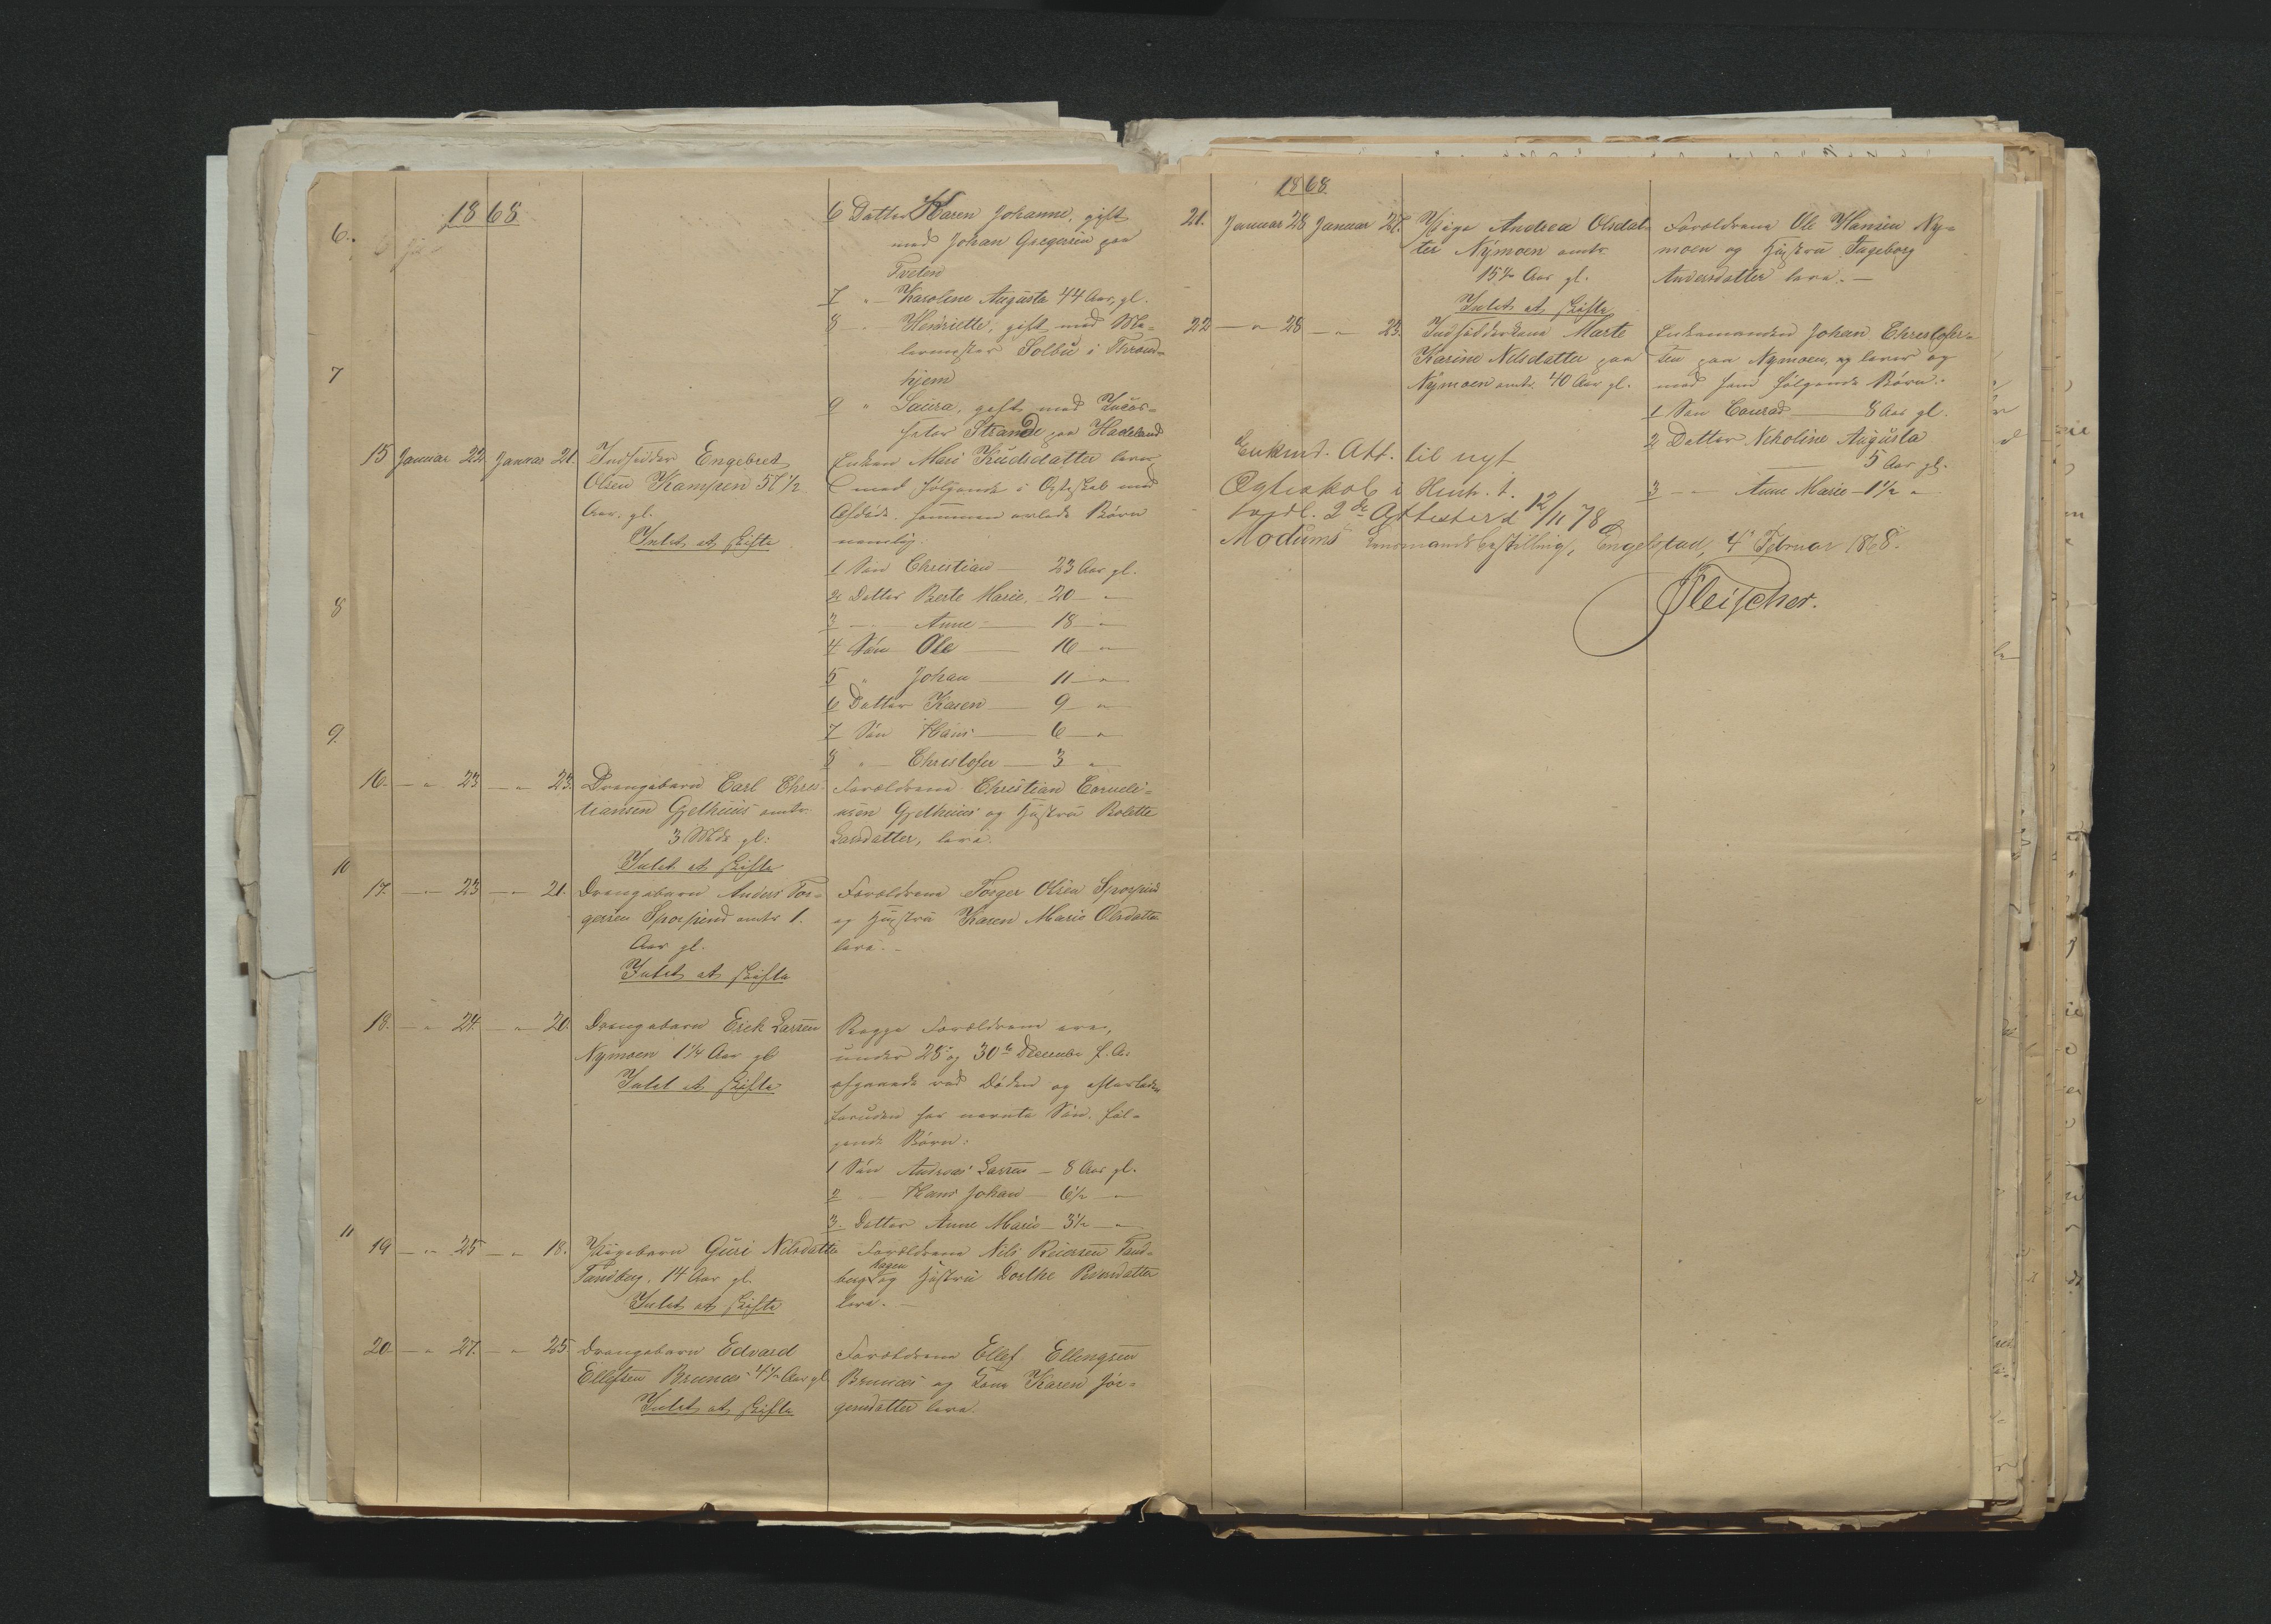 1868
6 Datter Karen Johanne, gift
med Johan Gregersen paa
Tveten
7 " Karoline Augusta 44 Aar, gl.
8 " Henriette, gift med Ma-
lermester Solbu i Thrond-
hjem
9 " Laura, gift med
Strande paa Hadeland
15 Januar 22 Januar 21. Indsidder Engebret
Olsen Kampen 57 1/2
Aar. gl.
Intet at skifte
Enken Mari Knudsdatter lever,
med følgende i Ægteskab med
Afdøde sammen avlede Børn
nemlig:
1 Søn Christian — 23 Aar gl.
2 Datter Berte Marie — 20 — "
3 — Anne — 18 — "
4 Søn Ole — 16 — "
5 " Johan — 11 — "
6 Datter Karen — 9 — "
7 Søn Hans — 6 — "
8 " — Christofer — 3 — "
16. — " 23 — " 23. Drengebarn Carl Chris-
tiansen Gjelhuus omtr.
3 Mdr gl.
Intet at skifte
Forældrene Christian Corneli-
usen Gjelhuus og Hustru Bolette
Larsdatter, leve.
17. — " 23 — " 21. Drengebarn Anders Tor-
gersen omtr 1.
Aar gl.
Intet at skifte
Forældrene Torger Olsen
og Hustru Karen Marie Olsdatter
leve. —
18. — " 24. — " 20. Drengebarn Erik Larsen
Nymoen 1 1/4 Aar gl
Intet at skifte
Begge Forældrene ere,
under 28de og 30te December f. A.
afgaaede ved Døden og efterlader
foruden her nævnte Søn. føl-
gende Børn:
1 Søn Andreas Larsen — 8 Aar gl.
2 — Hans Johan — 6 1/2 — "
3. Datter Anne Marie — 3 1/2 — "
19 — " 25 — " 18. Pigebarn Guri Nilsdatter
Tandberg. 14 Aar gl.
Intet at skifte
Forældrene Nils Reiersen Tand-
berg hagen og Hustru Dorthe
leve. —
20 — " 27. — " 25 Drengebarn Edvard
Ellefsen Brunæs 4 1/2 Aar gl
Intet at skifte
Forældrene Ellef Ellingsen
Brunæs og Kone Karen Jør-
gensdatter leve.
6.
7
8
9.
10
11
1868
21. Januar 28 Januar 27. Pige Andrea Olsdat-
ter Nymoen omtr.
15 1/2 Aar gl.
Intet at skifte
Forældrene Ole Hansen Ny-
moen og Hustru Ingeborg
Andersdatter leve. —
22 — " 28 — " 23. Indsidderkone Marte
Karine Nilsdatter paa
Nymoen omtr. 40 Aar gl.
Enkemanden Johan Christofer-
sen paa Nymoen, og lever og
med ham følgende Børn:
1 Søn Conrad — 8 Aar gl.
2 Datter Nikoline Augusta
— 5 Aar gl.
3 — " Anne Marie — 1 1/2 "
Enkmd. Att. til nyt
Ægteskab i Henh. t.
2de Attester d 12/11 78
Modums Lensmandsbestilling, Engelstad, 4de Februar 1868.
Fleischer.